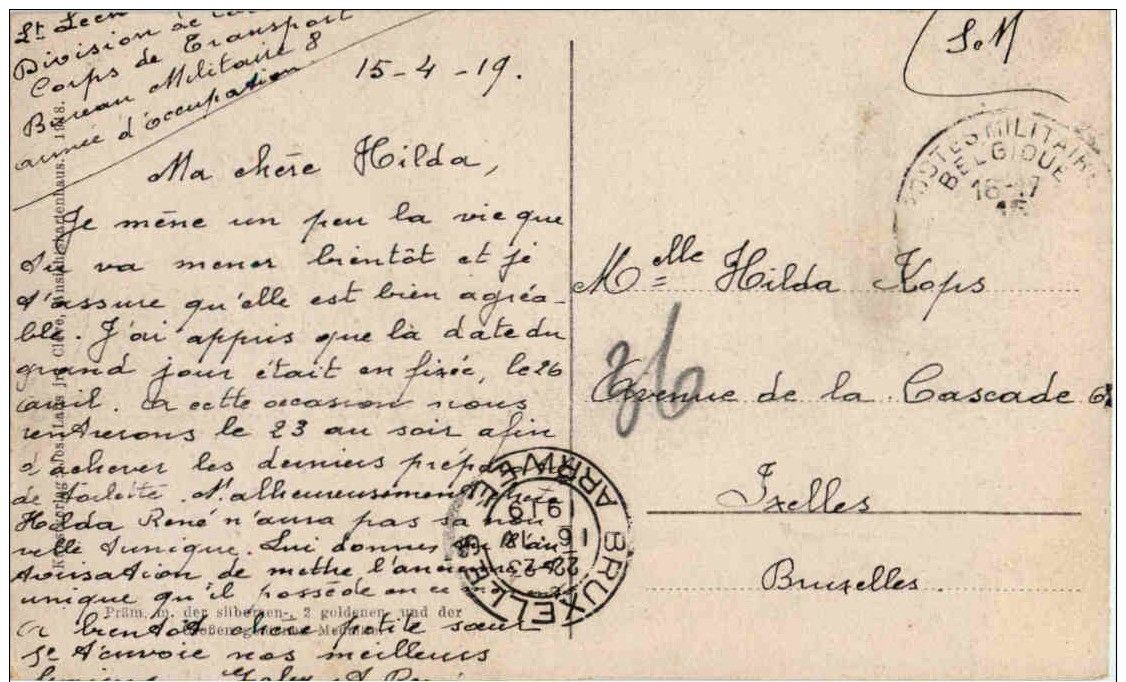 Lt Leen
Division de
Corps de Transport
Bureau Militaire 8
armée d'occupation
15-4-19.
Ma chère Hilda,
Je mène un peu la vie que
tu va mener bientôt et je
t'assure qu'elle est bien agréa-
ble. J'ai appris que la date du
grand jour était en fixée, le 26
avril. A cette occasion nous
rentrerons le 23 au soir afin
d'achever les derniers
de toilette. Malheureusement chère
Hilda René n'aura pas sa nou
velle tunique. Lui donnes tu l'au
torisation de mettre l'ancienne
unique qu'il possède en ce
A bientôt chère petite sœur
Je t'envoie nos meilleurs
S.M
POSTES MILITAIRES
BELGIQUE
16-17
15
Melle Hilda Kops
36
Avenue de la Cascade
Ixelles
Bruxelles.
BRUXELLES ARRIVÉE
1919
Präm. m. der silbernen-, 2 goldenen- und der